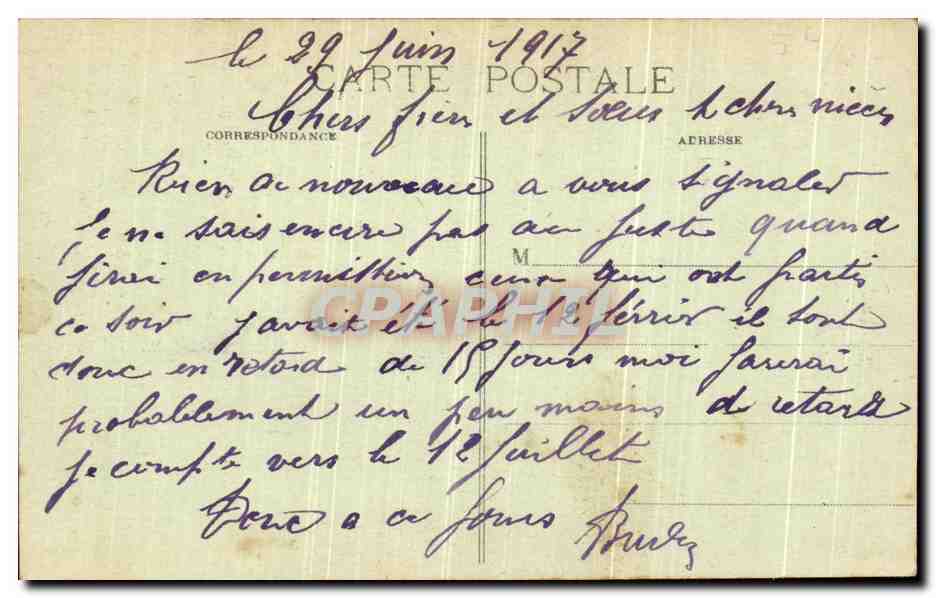 le 29 Juin 1917
CARTE POSTALE
Chers frere et Soeur et chere nièces
CORRESPONDANCE
ADRESSE
Rien de nouveau a vous signaler
Je ne sais encore pas au juste quand
M
j'irai en permission ceux qui ont partis
ce soir avait été le 12 février il sont
donc en retard de 15 jours moi j'aurai
probablement un peu moins de retard
je compte vers le 12 Juillet
Donc a ce jours
CPAPHIL